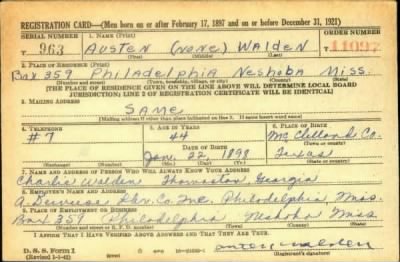 REGISTRATION CARD—(Men born on or after February 17, 1897 and on or before December 31, 1921)
SERIAL NUMBER 1. NAME (Print) ORDER NUMBER
T 963 AUSTEN (NONE) WALDEN 11097
(First) (Middle) (Last)
2. PLACE OF RESIDENCE (Print)
Box 359 Philadelphia Neshoba Miss.
(Number and street) (Town, township, village, or city) (County) (State)
[THE PLACE OF RESIDENCE GIVEN ON THE LINE ABOVE WILL DETERMINE LOCAL BOARD
JURISDICTION; LINE 2 OF REGISTRATION CERTIFICATE WILL BE IDENTICAL]
3. MAILING ADDRESS
SAME
[Mailing address if other than place indicated on line 2. If same insert word same]
4. TELEPHONE 5. AGE IN YEARS 6. PLACE OF BIRTH
#7 44 McClelland Co.
DATE OF BIRTH
Jan. 22, 1898 Texas
7. NAME AND ADDRESS OF PERSON WHO WILL ALWAYS KNOW YOUR ADDRESS
Charlie Walden Thomaston, Georgia
8. EMPLOYER'S NAME AND ADDRESS
A. Deweese Inc. Philadelphia, Miss.
9. PLACE OF EMPLOYMENT OR BUSINESS
Box 359 Philadelphia Neshoba Miss
I AFFIRM THAT I HAVE VERIFIED ABOVE ANSWERS AND THAT THEY ARE TRUE.
D. S. S. Form 1
walden